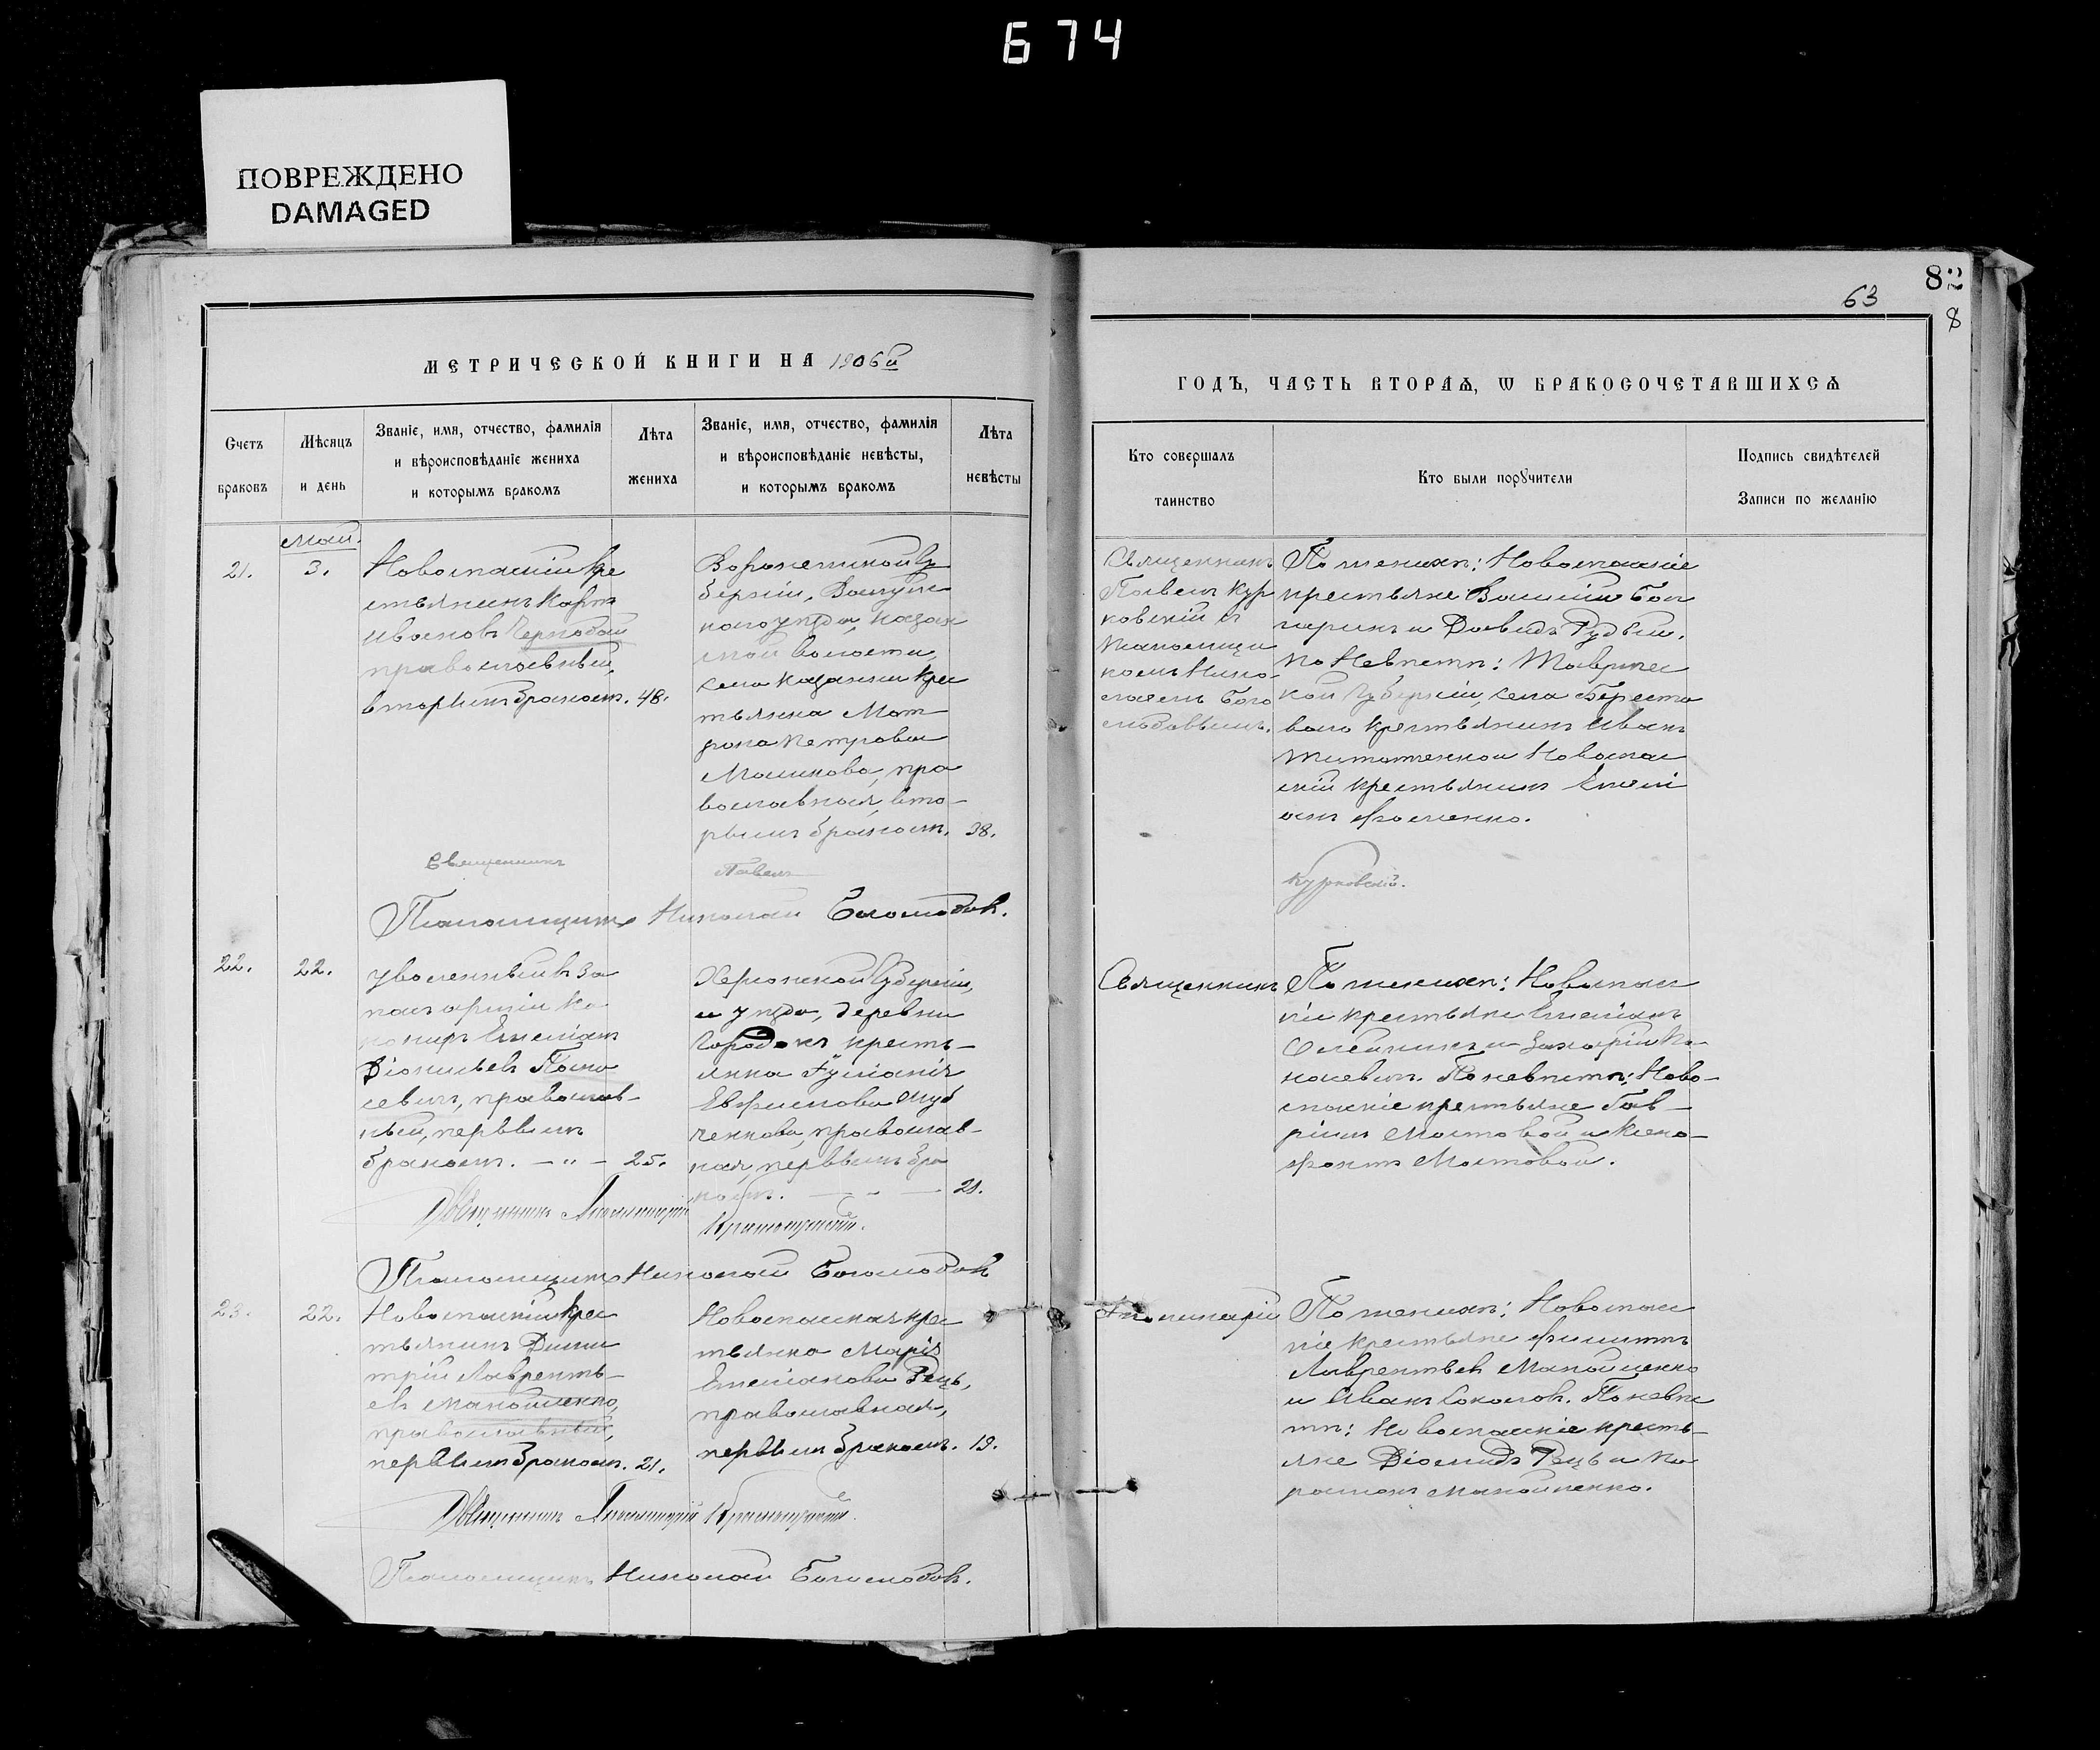 674
ПОВРЕЖДЕНО
DAMAGED
82
63
8
МЕТРИЧЕСКОЙ КНИГИ НА 1906й
ГОДЪ, ЧАСТЬ ВТОРАѦ, Ѡ БРАКОСОЧЕТАВШИХСѦ
Счетъ браковъ
Мѣсяцъ и день
Званіе, имя, отчество, фамилія
и вѣроисповѣданіе жениха
и которымъ бракомъ
Лѣта жениха
Званіе, имя, отчество, фамилія
и вѣроисповѣданіе невѣсты,
и которымъ бракомъ
Лѣта невѣсты
Кто совершалъ таинство
Кто были порꙋчители
Подпись свидѣтелей
Записи по желанію
Май.
21.
3.
Новоспаскій кре
стьянинъ Карпъ
Ивановъ Чернобай
православный,
вторымъ бракомъ. 48.
Воронежской Гу
берніи,
каго уѣзда, Казан
ской волости,
села Казанки кре
стьянка Мат
рона Петрова
Маликова, пра
вославная, вто-
рымъ бракомъ. 38.
Священникъ
Павелъ Кур
ковскій съ
Псаломщи
комъ Нико-
лаемъ Бого
любовымъ.
По женихѣ: Новоспаскіе
крестьяне Василій Бол
гаринъ и Давидъ Рудый.
По Невѣстѣ: Тавричес
кой Губерніи, села Бересто
ваго крестьянинъ Иванъ
и Новоспас
скій крестьянинъ Емелі
анъ Фоменко.
Священникъ Павелъ Курковскій.
Псаломщикъ Николай Боголюбовъ.
22.
22.
Уволенный въ за
пасъ арміи ка
нониръ Емеліанъ
Діонисьевъ
православ-
ный, первымъ
бракомъ. — " — 25.
Херсонской Губерніи,
и уѣзда, деревни
Городокъ кресть-
янка Іуліанія
Евфимова
ченкова, православ-
ная, первымъ бра
комъ. — " — 21.
Священникъ
По женихѣ: Новоспас
кіе крестьяне Емеліанъ
Олейникъ и Захарій Ко
По невѣстѣ: Ново-
спаскіе крестьяне Гав-
ріилъ Мостовой и Ксено-
фонтъ Мостовой.
Священникъ
Псаломщикъ Николай Боголюбовъ
23.
22.
Новоспаскій крес
тьянинъ Дими
трій Лавренть-
евъ Манойленко,
православный,
первымъ бракомъ. 21.
Новоспаская крес
тьянка Марія
Емеліанова Рецъ,
православная,
первымъ бракомъ. 19.
Аполинарій
По женихѣ: Новоспас
кіе крестьяне Филиппъ
Лаврентьевъ Манойленко
и Иванъ Соколовъ. По невѣс
тѣ: Новоспаскіе кресть-
яне Діомидъ Рецъ и
Манойленко.
Священникъ
Псаломщикъ Николай Боголюбовъ.